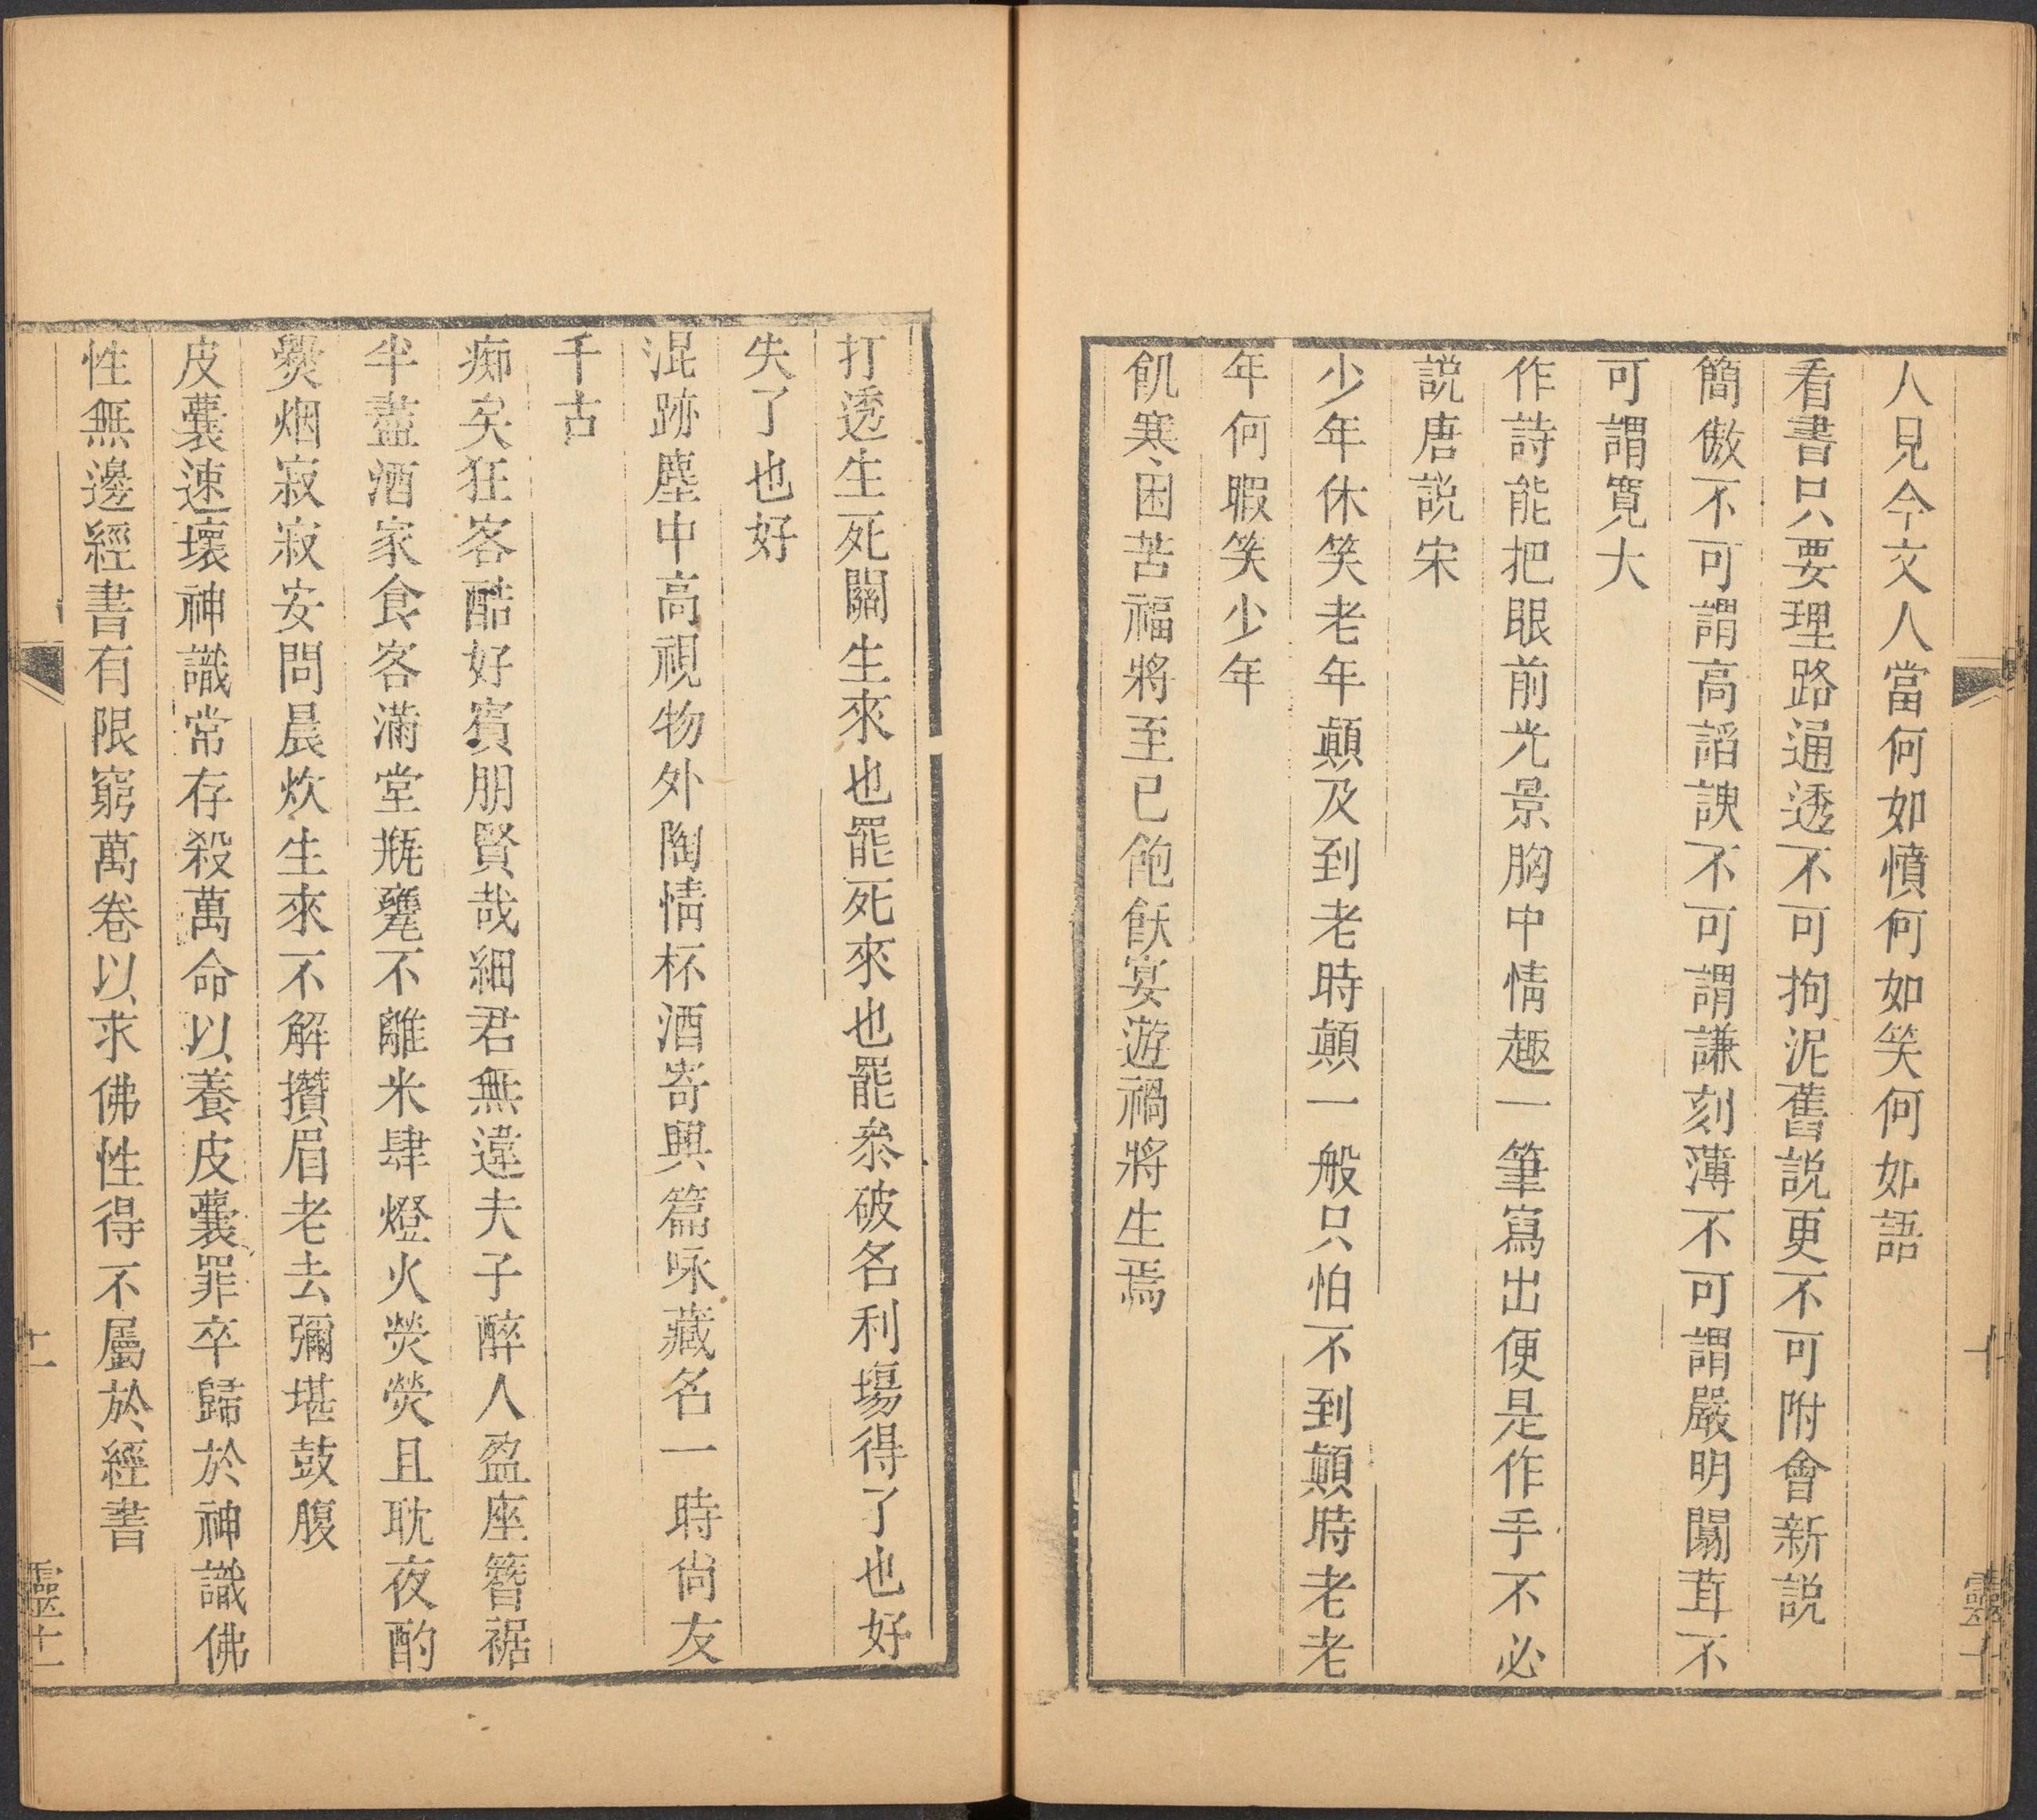 人見今文人當何如憤何如笑何如語
看書只要理路通透不可拘泥舊説更不可附會新説
簡傲不可謂高謟諛不可謂謙刻薄不可謂嚴明闒茸不
可謂寬大
作詩能把眼前光景胸中情趣一筆寫出便是作手不必
説唐説宋
少年休笑老年顛及到老時顛一般只怕不到顛時老老
年何暇笑少年
飢寒困苦福將至已飽飫宴遊禍將生焉
十
靈十
打透生死關生來也罷死來也罷叅破名利塲得了也好
失了也好
混跡塵中高視物外陶情杯酒寄興篇咏藏名一時尙友
千古
痴矣狂客酷好賓朋賢哉細君無違夫子醉人盈座簪裾
半盡酒家食客滿堂瓶罋不離米肆燈火熒熒且耽夜酌
爨烟寂寂安問晨炊生來不解攢眉老去彌堪鼓腹
皮囊速壞神識常存殺萬命以養皮囊罪卒歸於神識佛
性無邊經書有限窮萬卷以求佛性得不屬於經書
十一
靈十一